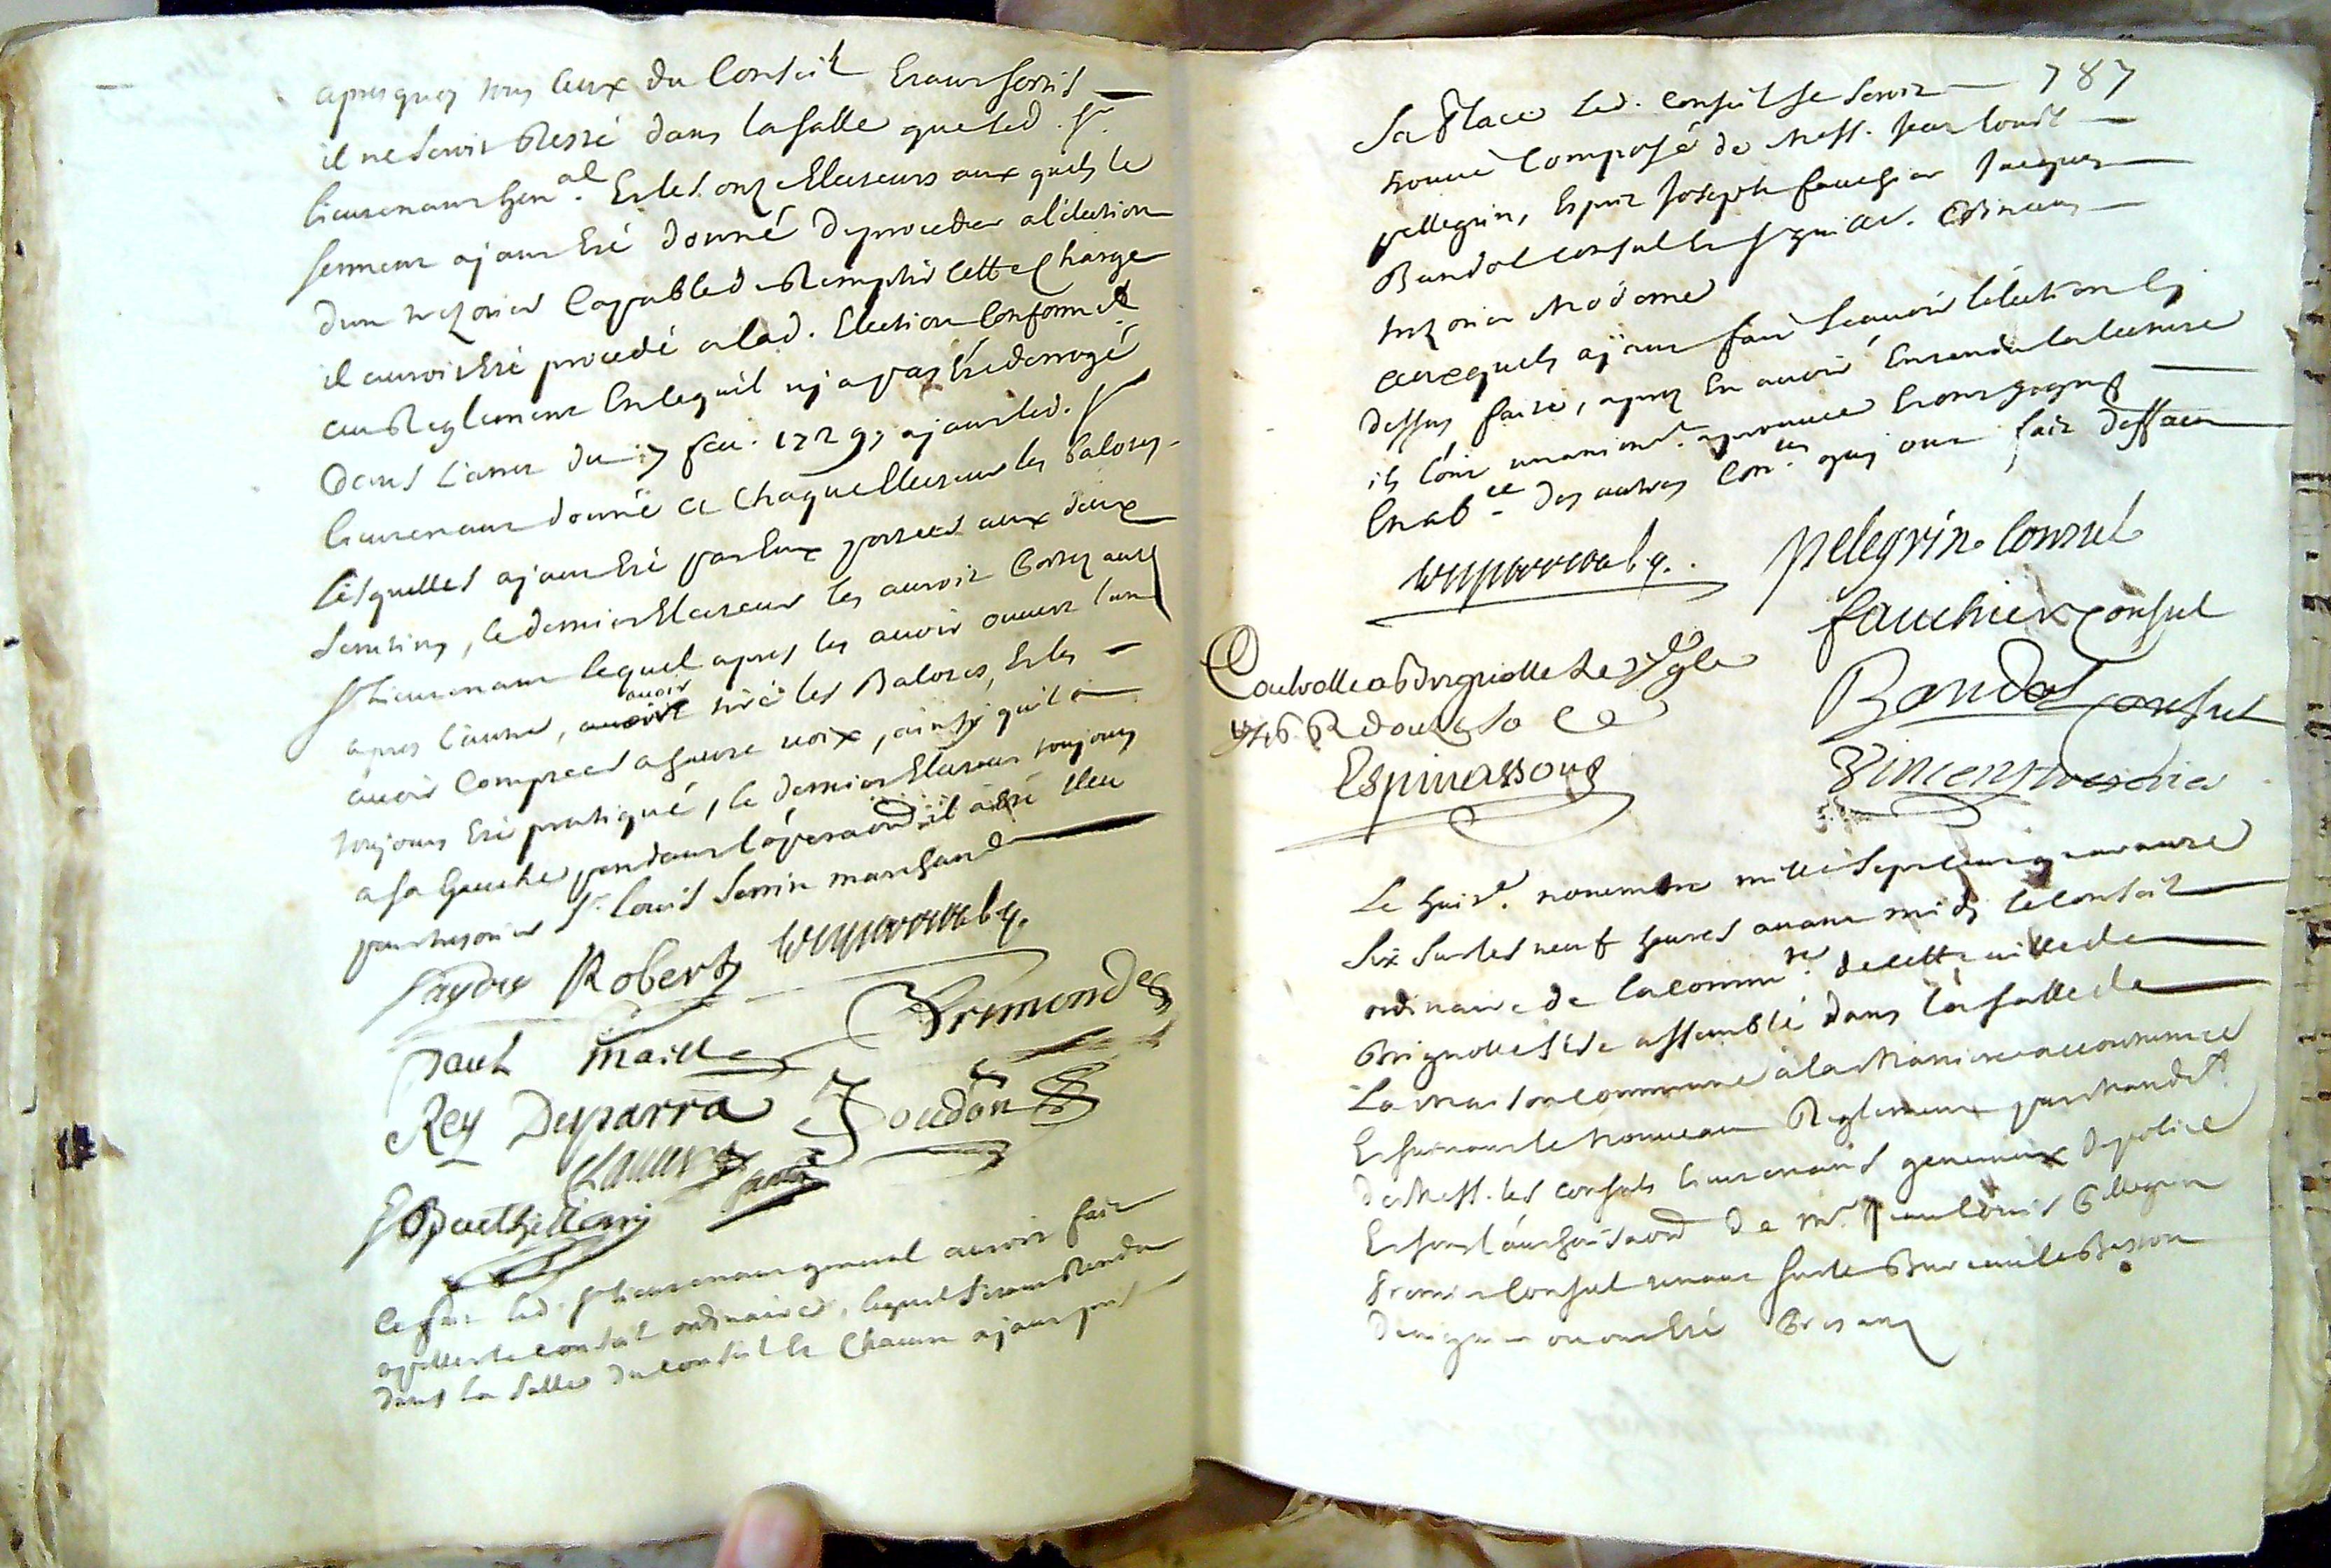 apres quoy tous ceux du Conseil Etant sortis
il ne seroit Resté dans la salle que led. Sr.
lieutenant Gen.al Et les onze Electeurs aux quels le
serment ajant Eté donné de proceder a l'élection
d'un trezorier Capable de Remplir cette Charge
il auroit Eté procedé a lad. Election Conformet
au Reglement En lequel nj a pas Eté derrogé
Dans l'arret du 17 feu. 1729, ajant led. Sr
lieutenant donné a Chaque Electeur les balotes
lesquelles ajant Eté par Eux portées aux deux
scrutins, le dernier Electeur les auroit Portez aud
Sr lieutenant lequel apres les avoir ouvert l'un
apres l'autre, avoir tiré les Balotes, Et les
avoir Comptées a haute voix, ainsy quil a
toujours Eté pratiqué, le dernier Electeur toujours
a sa Gauche pendant l'operaon il a Eté Eleu
pour trezorier Sr. Louis Serrin marchand
Robert
Paul Maille Fremond
Rey Duparra Joudon
Ce fait led. Sr lieutenant general auroit fait
apeller le conseil ordinaire, lequel s'etant Rendu
dans la salle du conseil Et Chacun ajant pris
787
sa Place led. Conseil se seroit
trouvé Composé de Mess. Jean Louis
pellegrin, Esprit Joseph fauchier Jacques
Bandol consul Et Sr guill. Vincens
trezorier Moderne
auxquels ajant fait scauoir l'élection cy
dessus faite, aprez En avoir Entendu la lecture
ils l'ont unanimt. aprouvée Et ont signé
En abce des autres Con.ers quy ont fait deffaut
pelegrin Consul
fauchier Consul
Bandol Consul
Vincens tresorier
Espinassous
Le huit.e novembre mille sept cent quarante
six sur les neuf heures avant midy le Conseil
ordinaire de la Commté. de cette ville de
Brignolle s'est assemblé dans la salle de
la maison commune a la Maniere accoutumée
Et suivant le Nouveau Reglement par Mandt.
de Mess. les consuls lieutenants generaux de police
Et sous l'authorisaon de Mr. Jean Louis Pellegrin
Premier Consul tenant sur le Bureau le Baston
de vigne ou ont Eté Presens